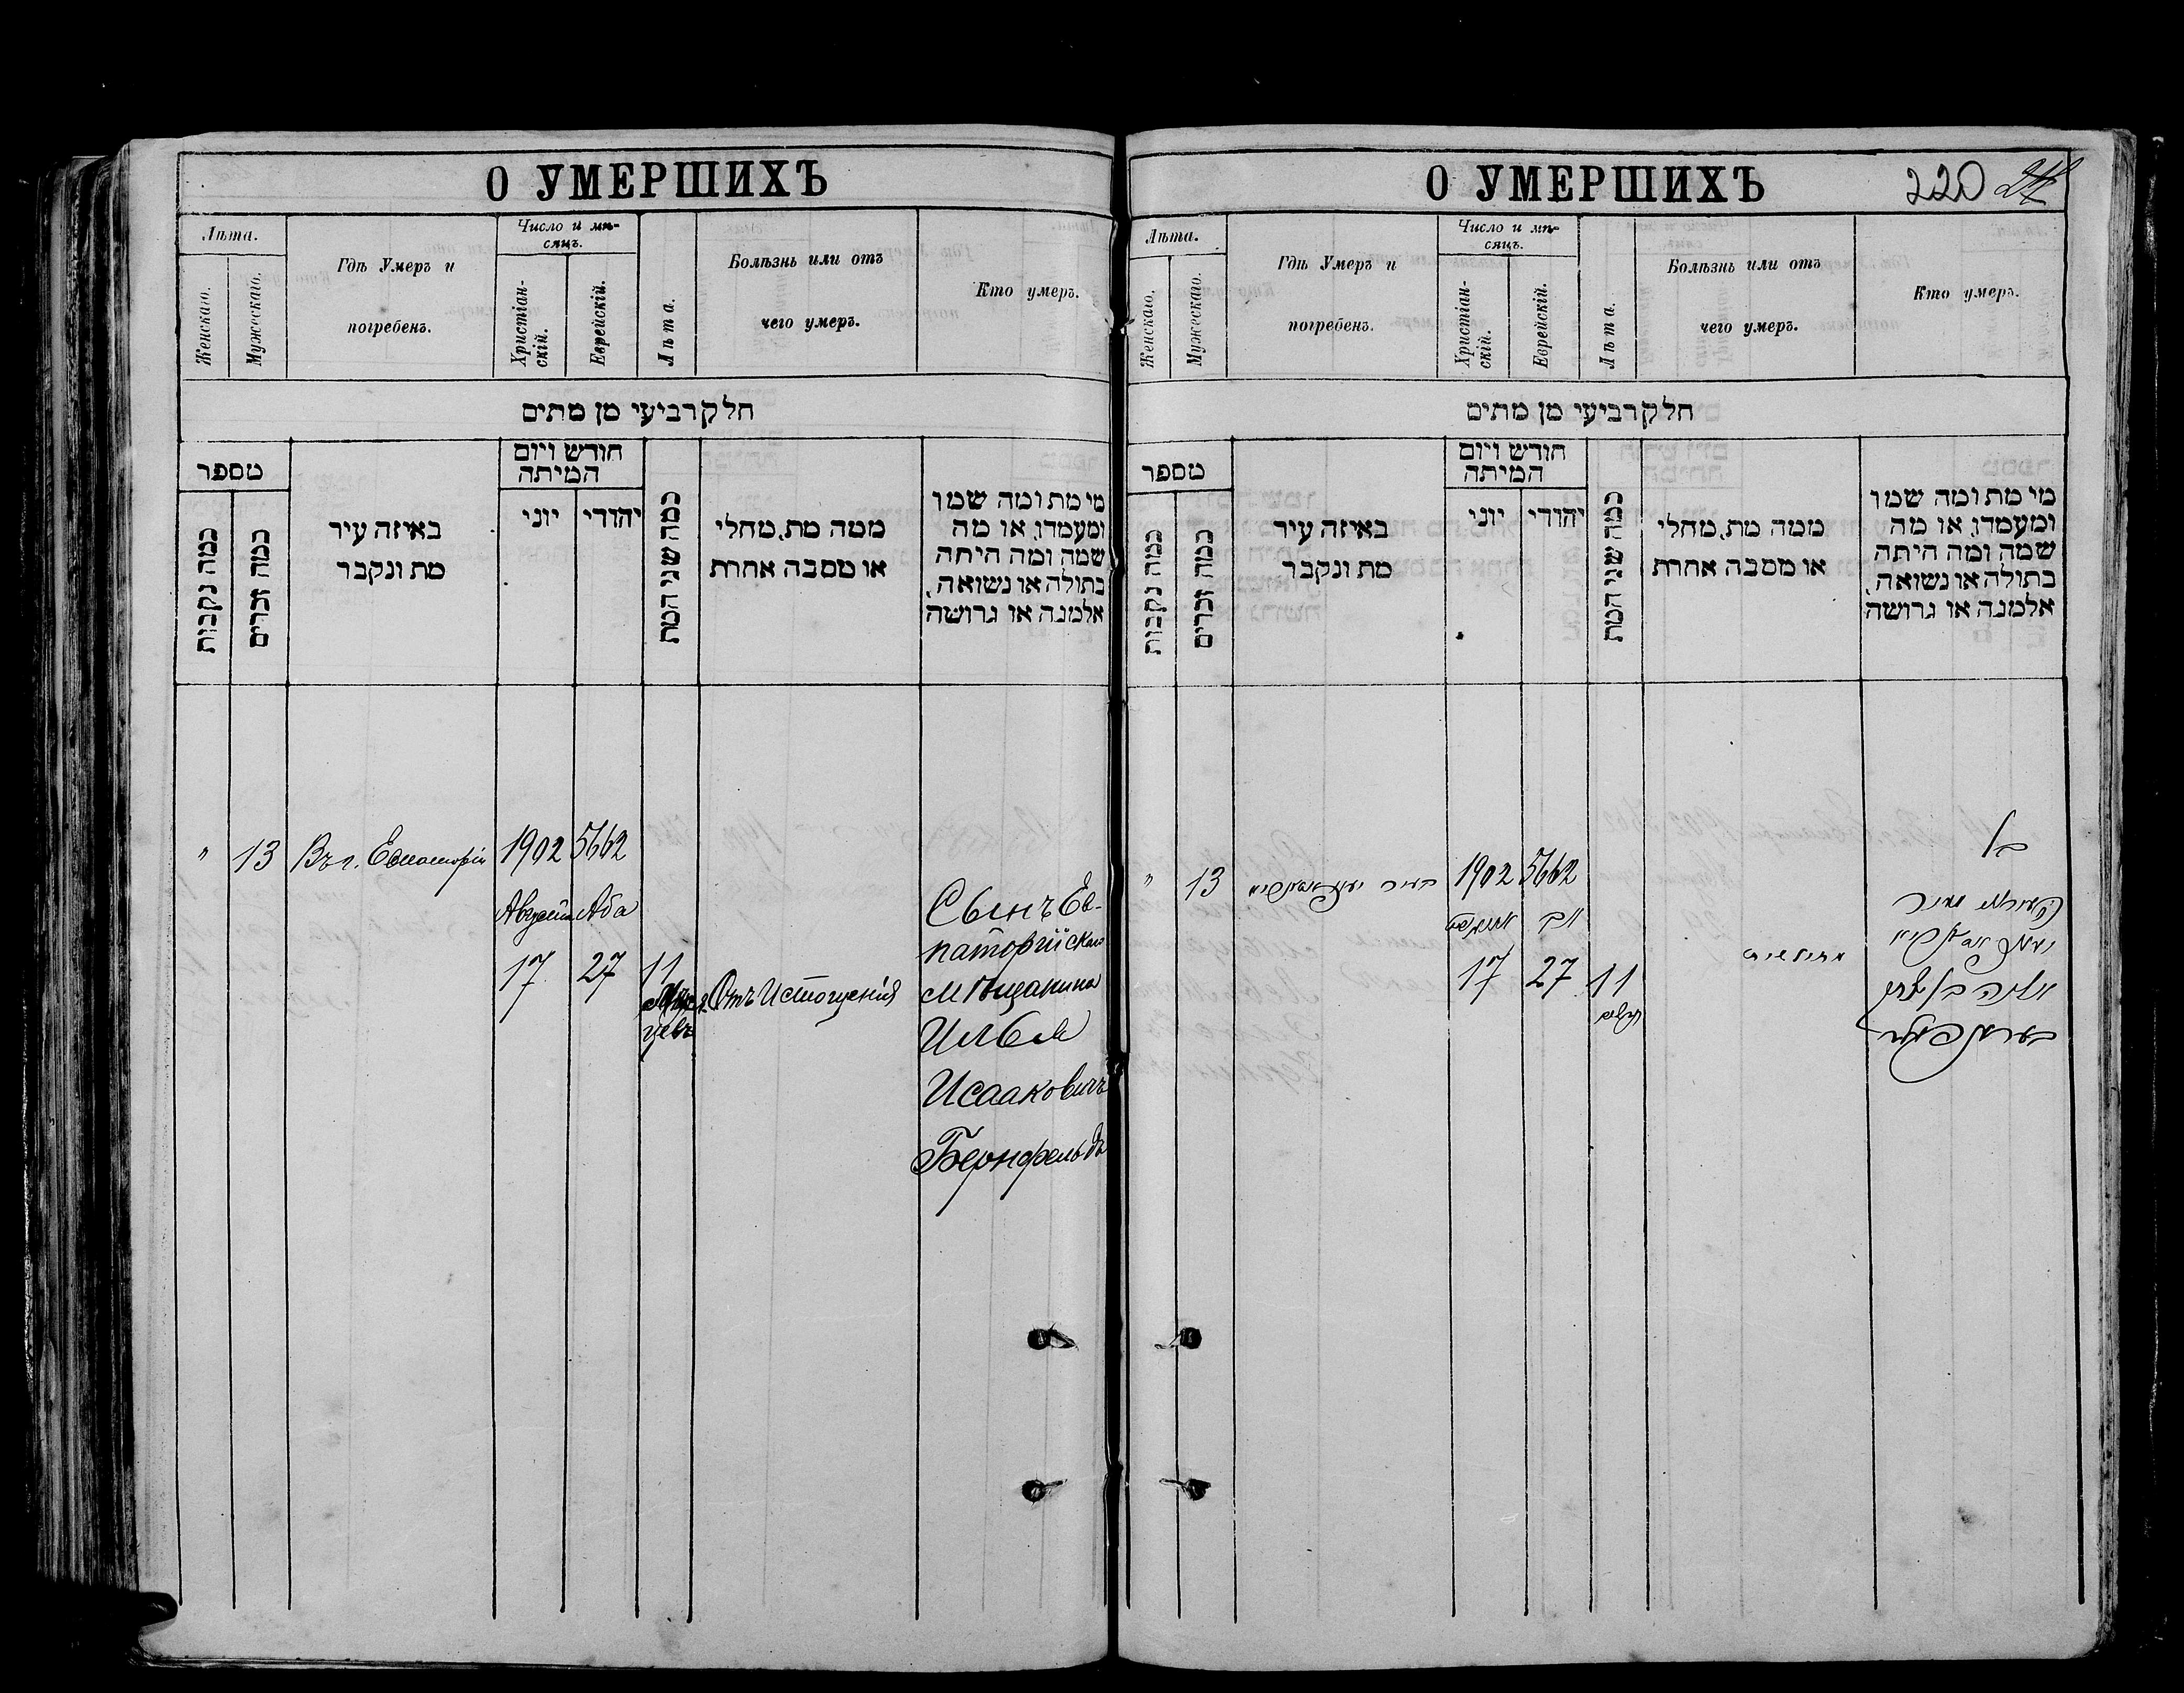 О УМЕРШИХЪ
Лѣта.
Женскаго.
Мужескаго.
Гдѣ Умеръ и
погребенъ.
Число и мѣ-
сяцъ.
Христіан-
скій.
Еврейскій.
Лѣта.
Болѣзнь или отъ
чего умеръ.
Кто умеръ.
חלק רביעי מן מתים
מספר
כמה נקבות
כמה זכרים
באיזה עיר
מת ונקבר
חודש ויום
המיתה
יוני
יהודי
כמה שני המת
ממה מת, מחלי
או מסבה אחרת
מי מת ומה שמו
ומעמדו, או מה
שמה ומה היתה
בתולה או נשואה,
אלמנה או גרושה
" 13 Въ г. Евпаторіи 1902 5662
Августа Аба
17 27 11
Мѣся-
цевъ
Отъ Истощенія
Сынъ Ев-
паторійскаго
мѣщанина
Илья
Исааковичъ
Бернфельдъ
О УМЕРШИХЪ 220
Лѣта.
Женскаго.
Мужескаго.
Гдѣ Умеръ и
погребенъ.
Число и мѣ-
сяцъ.
Христіан-
скій.
Еврейскій.
Лѣта.
Болѣзнь или отъ
чего умеръ.
Кто умеръ.
חלק רביעי מן מתים
מספר
כמה נקבות
כמה זכרים
באיזה עיר
מת ונקבר
חודש ויום
המיתה
יוני
יהודי
כמה שני המת
ממה מת, מחלי
או מסבה אחרת
מי מת ומה שמו
ומעמדו, או מה
שמה ומה היתה
בתולה או נשואה,
אלמנה או גרושה
" 13 בעיר 1902 5662
אויגוסט אב
17 27 11
מחולשות
בן
אליה בן יצחק
בערנפעלד